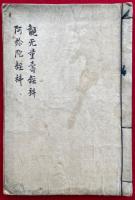 観无量壽經科
阿弥陀經科